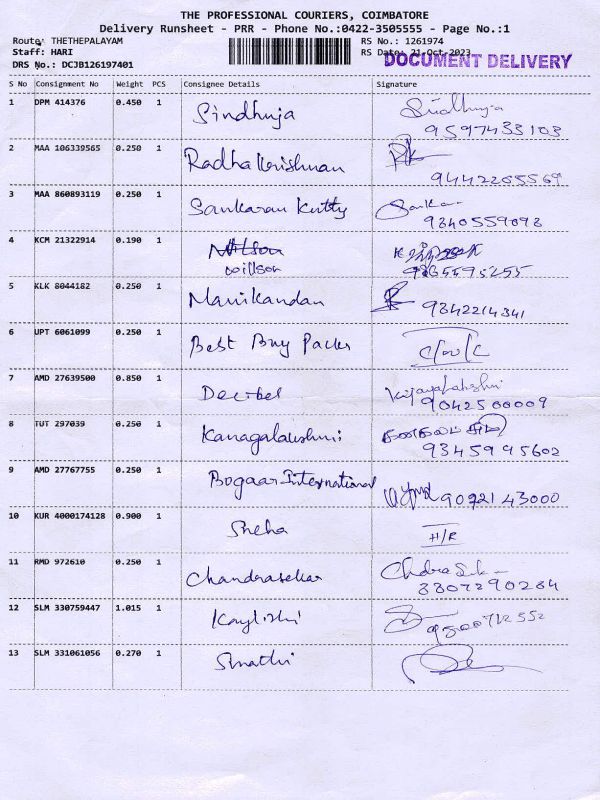 THE PROFESSIONAL COURIERS, COIMBATORE
Delivery Runsheet - PRR - Phone No.:0422-3505555 - Page No.:1
Route: THETHEPALAYAM RS No.: 1261974
Staff: HARI RS Date: 21-Oct-2023
DOCUMENT DELIVERY
DRS No.: DCJB126197401
S No Consignment No Weight PCS Consignee Details Signature
1 DPM 414376 0.450 1 Sindhuja Sindhuja
9597433103
2 MAA 106339565 0.250 1 Radhakrishnan
9442265569
3 MAA 860893119 0.250 1 Sankaran Kutty Sankar
9340559093
4 KCM 21322914 0.190 1 Willson
5 KLK 8044182 0.250 1 Manikandan 9342214341
6 UPT 6061099 0.250 1 Best Buy Packs
7 AMD 27639500 0.850 1 Decibel Vijayalakshmi
9042500009
8 TUT 297039 0.250 1 Kanagalakshmi
9345995602
9 AMD 27767755 0.250 1 Bogaar International 9072143000
10 KUR 4000174128 0.900 1 Sneha H/R
11 RMD 972610 0.250 1 Chandrasekar
12 SLM 330759447 1.015 1
13 SLM 331061056 0.270 1